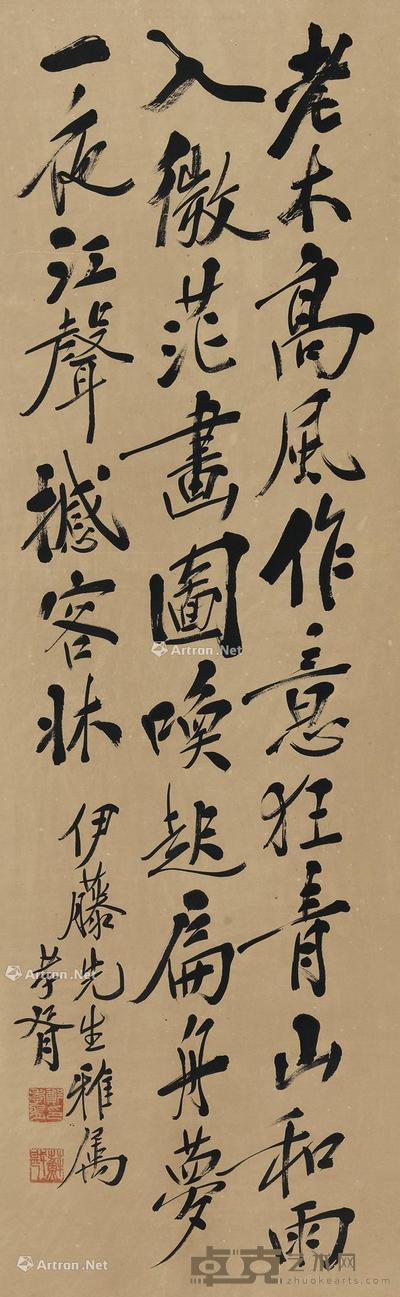 老木高風作意狂青山和雨
入微茫畫圖喚起扁舟夢
一夜江聲撼客牀
伊藤先生雅属
孝胥
Artron.Net
Artron.Net
Artron.Net
Artron.Net
卓克艺术网
zhuokearts.com